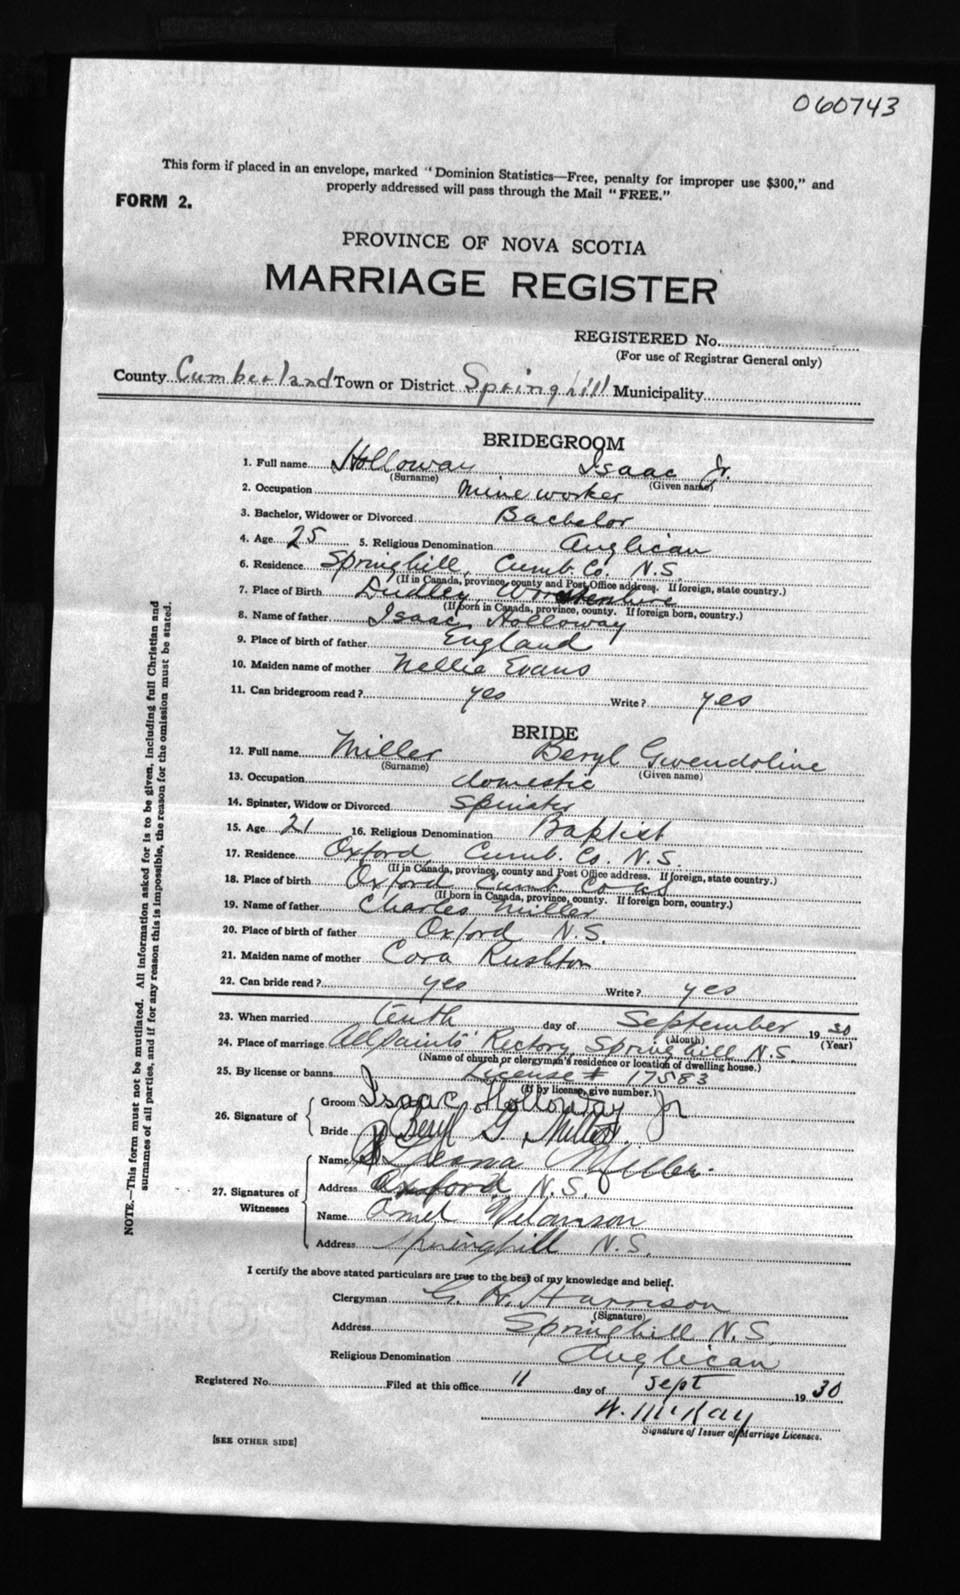 060743
This form if placed in an envelope, marked "Dominion Statistics—Free, penalty for improper use $300," and
properly addressed will pass through the Mail "FREE."
FORM 2.
PROVINCE OF NOVA SCOTIA
MARRIAGE REGISTER
REGISTERED No.
(For use of Registrar General only)
County Cumberland Town or District Springhill Municipality
BRIDEGROOM
1. Full name Holloway Isaac Jr.
(Surname) (Given name)
2. Occupation Mine worker
3. Bachelor, Widower or Divorced Bachelor
4. Age 25 5. Religious Denomination Anglican
6. Residence Springhill, Cumb. Co. N.S.
(If in Canada, province, county and Post Office address. If foreign, state country.)
7. Place of Birth Dudley,
(If born in Canada, province, county. If foreign born, country.)
8. Name of father Isaac Holloway
9. Place of birth of father England
10. Maiden name of mother Nellie Evans
11. Can bridegroom read? yes Write? yes
BRIDE
12. Full name Miller Beryl Gwendoline
(Surname) (Given name)
13. Occupation domestic
14. Spinster, Widow or Divorced Spinster
15. Age 21 16. Religious Denomination Baptist
17. Residence Oxford, Cumb. Co. N.S.
(If in Canada, province, county and Post Office address. If foreign, state country.)
18. Place of birth Oxford Cumb. Co
(If born in Canada, province, county. If foreign born, country.)
19. Name of father Charles Miller
20. Place of birth of father Oxford N.S.
21. Maiden name of mother Cora Rushton
22. Can bride read? yes Write? yes
23. When married tenth day of September 1930
(Month) (Year)
24. Place of marriage All Saints' Rectory, Springhill N.S.
(Name of church or clergyman's residence or location of dwelling house.)
25. By license or banns License # 17583
(If by license, give number.)
26. Signature of
Groom Isaac Holloway Jr
Bride Beryl G. Miller
27. Signatures of Witnesses
Name Miller
Address Oxford, N.S.
Name
Address Springhill N.S.
I certify the above stated particulars are true to the best of my knowledge and belief.
Clergyman G. H. Harrison
(Signature)
Address Springhill N.S.
Religious Denomination Anglican
Registered No. Filed at this office 11 day of Sept 1930
W. McKay
Signature of Issuer of Marriage Licenses.
[SEE OTHER SIDE]
NOTE.—This form must not be mutilated. All information asked for is to be given, including full Christian and
surnames of all parties, and if for any reason this is impossible, the reason for the omission must be stated.